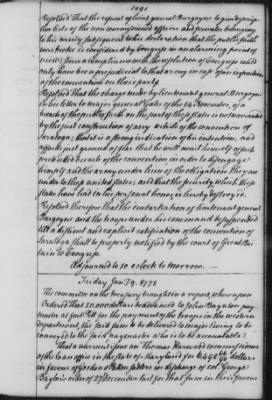 1691
Resolved That the refusal of lieut general Burgoyne to give descrip-
tive lists of the non commissioned officers and privates belonging
to his army subsequent to his declaration that the public faith
was broke is considered by Congress in an alarming point of
view; since a compliance with the resolution of Congress could
only have been prejudicial to that army in case of an infraction
of the convention on their part
Resolved That the charge made by lieutenant general Burgoyne
in his letter to major general Gates of the 14 November, of a
breach of the public faith on the part of these states is not warranted
by the just construction of any article of the convention of
Saratoga; that it is a strong indication of his intention, and
affords just ground of fear that he will avail himself of such
pretended breach of the convention in order to disengage
himself and the army under him of the obligation they are
under to these united states; and that the security which these
states have had in his personal honor is hereby destroyed.
Resolved therefore that the embarkation of lieutenant general
Burgoyne and the troops under his command be suspended
till a distinct and explicit ratification of the convention of
Saratoga shall be properly notified by the court of Great Bri-
tain to Congress.
Adjourned to 10 oClock to Morrow.
Friday Jany 9. 1778
The committee on the treasury brought in a report, whereupon
Ordered that 20,000 dollars be advanced to John Boynton pay-
master at fort Pitt for the payment of the troops in the western
department, the said sum to be delivered to major to be
conveyed to the said paymaster who is to be accountable:
That a warrant issue on Thomas Harwood commissioner
of the loan office in the state of Maryland for dollars
in favour of in discharge of col. George
Baylor's order of 27 December last for that sum in their favour